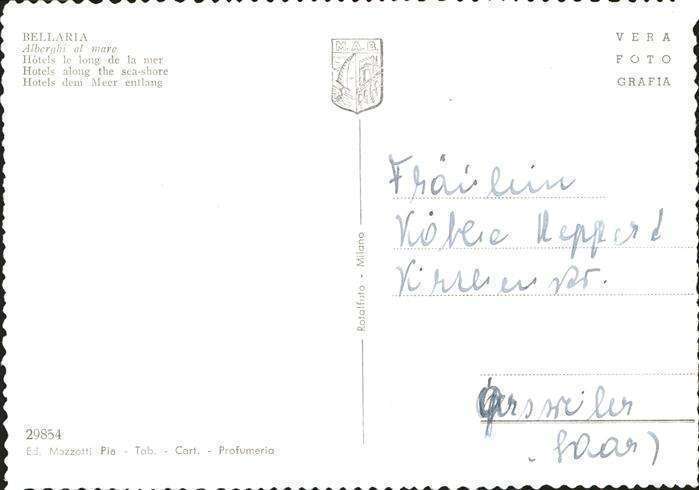 BELLARIA
Alberghi al mare
Hôtels le long de la mer
Hotels along the sea-shore
Hotels dem Meer entlang
M.A.R.
VERA
FOTO
GRAFIA
Fräulein
Käthe Heppard
Kirchenstr.
Gersweiler
(Saar)
Rotalfoto - Milano
29854
Ed. Mazzotti Pia - Tab. - Cart. - Profumeria